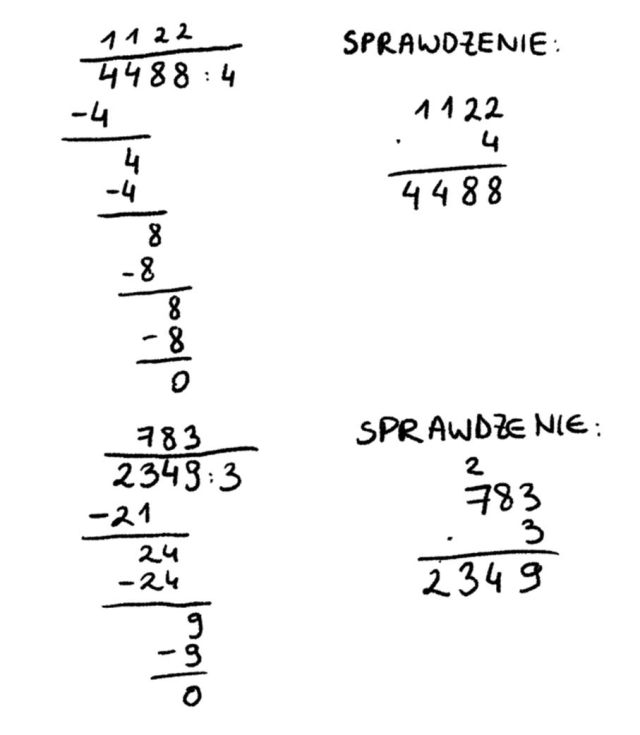 1122
4488:4
-4
4
-4
8
-8
8
-8
0
SPRAWDZENIE:
1122
· 4
4488
783
2349:3
-21
24
-24
9
-9
0
SPRAWDZENIE:
2
783
· 3
2349